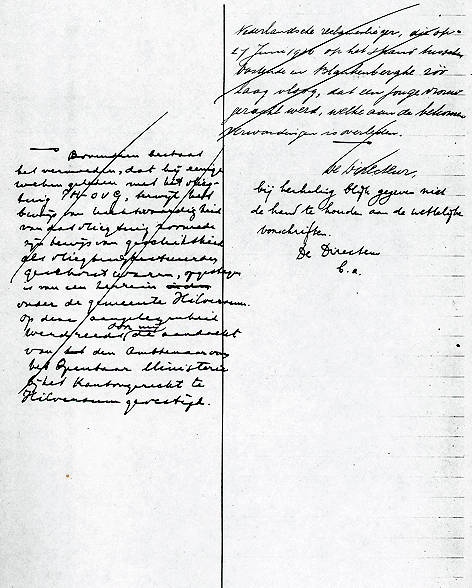 Nederlandsche reclamevlieger, die op
27 Juni 1936 op het strand tusschen
Oostende en Blankenberghe zóó
laag vloog, dat een jonge vrouw
geraakt werd, welke aan de bekomen
verwondingen is overleden.
De Directeur,
bij herhaling blijk gegeven niet
de hand te houden aan de wettelijke
voorschriften.
De Directeur
Bovendien bestaat
het vermoeden, dat hij eenige
weken geleden met het vlieg-
tuig PH-OVG, terwijl het
bewijs van luchtwaardigheid
van dat vliegtuig zoomede
zijn bewijs van geschiktheid
als vliegtuigbestuurder
geschorst waren, opgestegen
is van een terrein
onder de gemeente Hilversum.
op deze aangelegenheid
werd reeds door mij de aandacht
van den Ambtenaar van
het Openbaar Ministerie
bij het Kantongerecht te
Hilversum gevestigd.